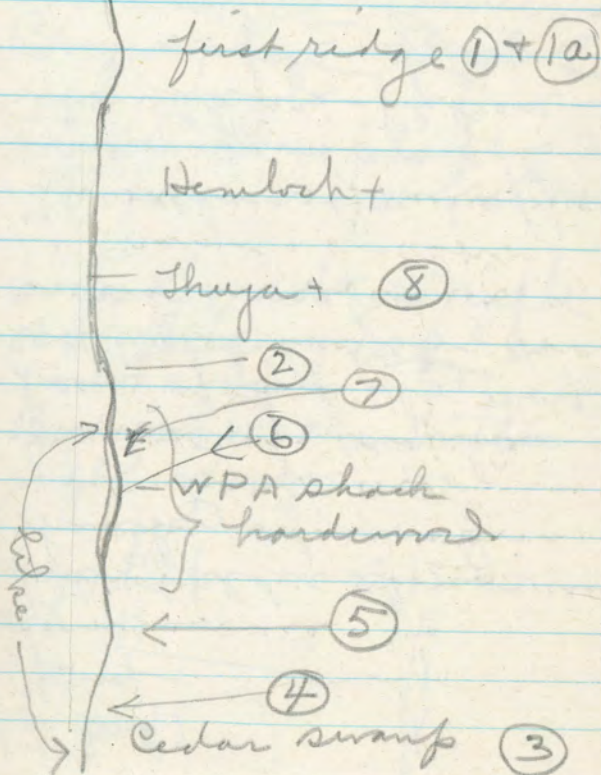 first ridge ① + 1a
Hemlock +
Thuja + ⑧
②
⑦
⑥
WPA shack
hardwood
⑤
④
Cedar swamp ③